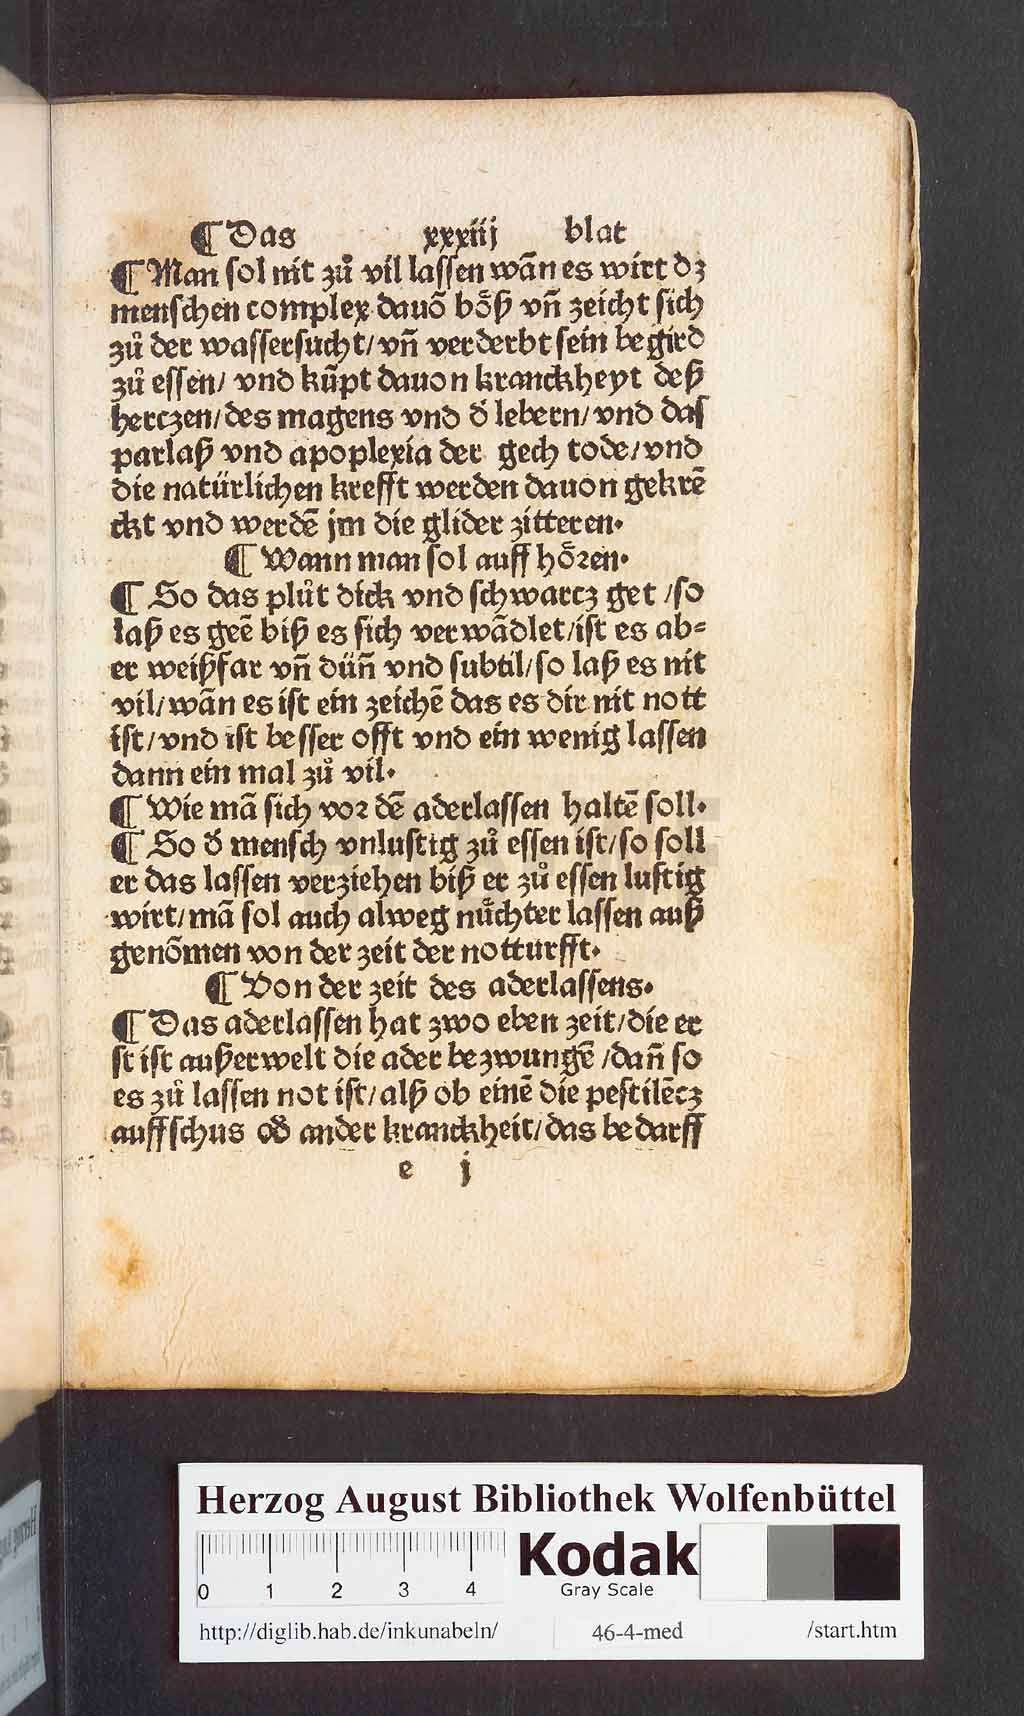 ¶ Das xxxiij blat
¶ Man sol nit zů vil lassen wañ es wirt dz
menschen complex dauõ bo̊ß vñ zeicht sich
zů der wassersucht/ vñ verderbt sein begird
zů essen/ vnd kũpt dauon kranckheyt deß
herczen/ des magens vnd d' lebern/ vnd das
parlaß vnd apoplexia der gech tode/ vnd
die natürlichen krefft werden dauon gekrẽ
ckt vnd werdẽ jm die glider zitteren.
¶ Wann man sol auff hoͤren.
¶ So das plůt dick vnd schwarcz get /so
laß es geẽ biß es sich verwãdlet/ist es ab=
er weißfar vñ düñ vnd subtil/ so laß es nit
vil/ wãn es ist ein zeichẽ das es dir nit nott
ist/ vnd ist besser offt vnd ein wenig lassen
dann ein mal zů vil.
¶ Wie mã sich vor dẽ aderlassen haltẽ soll.
¶ So d' mensch vnlustig zů essen ist/ so soll
er das lassen verziehen biß er zů essen lustig
wirt/ mã sol auch alweg nůchter lassen auß
genõmen von der zeit der notturfft.
¶ Von der zeit des aderlassens.
¶ Das aderlassen hat zwo eben zeit/ die er
st ist außerwelt die ader bezwungẽ /dañ so
es zů lassen not ist/ alß ob einẽ die pestilẽcz
auffschus od' ander kranckheit/ das bedarff
e j
Herzog August Bibliothek Wolfenbüttel
0 1 2 3 4
Kodak
Gray Scale
http://diglib.hab.de/inkunabeln/ 46-4-med /start.htm